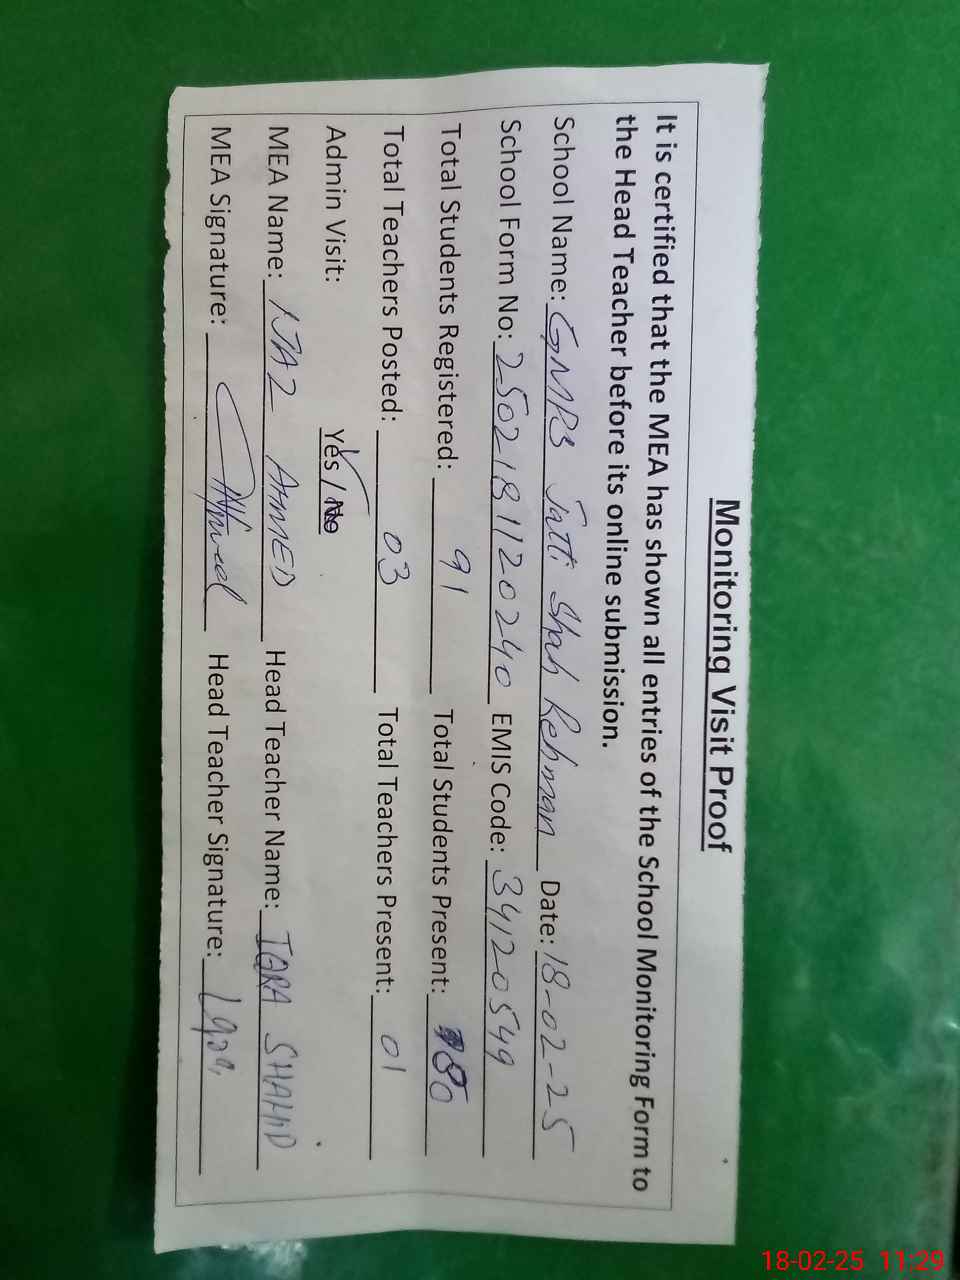 Monitoring Visit Proof
It is certified that the MEA has shown all entries of the School Monitoring Form to
the Head Teacher before its online submission.
School Name: GMPS Jatti Shah Rehman Date: 18-02-25
School Form No: 2502181120240 EMIS Code: 34120549
Total Students Registered: 91 Total Students Present: 80
Total Teachers Posted: 03 Total Teachers Present: 01
Admin Visit: Yes / No
MEA Name: IJAZ AHMED Head Teacher Name: IQRA SHAHID
MEA Signature: Head Teacher Signature: Iqra
18-02-25 11:29